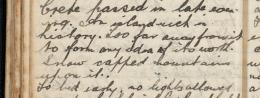 Crete passed in late eve-
ning. An island rich in
history. Too far away from it
to form any idea of its worth.
Snow capped mountains
upon it.
To bed early, no lights allowed